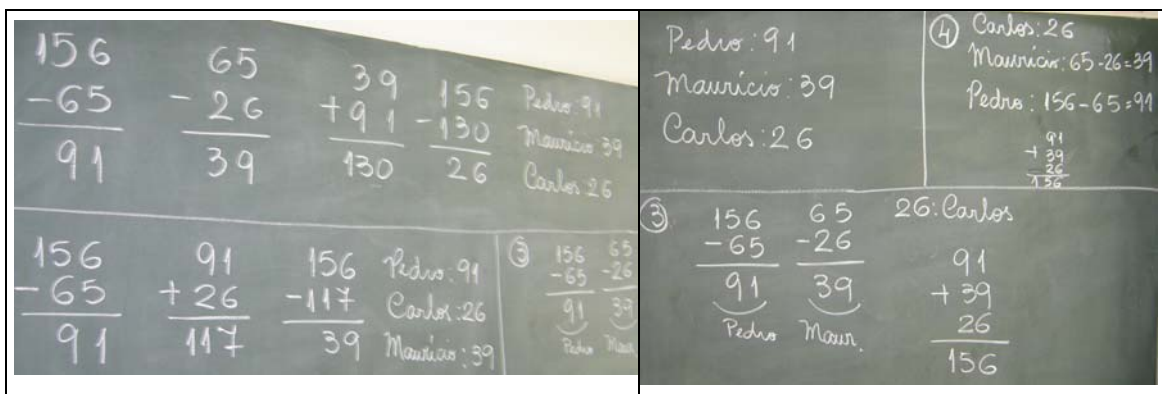 156
-65
91
65
- 26
39
39
+91
130
156
-130
26
Pedro: 91
Maurício: 39
Carlos: 26
156
- 65
91
91
+ 26
117
156
-117
39
Pedro: 91
Carlos: 26
Maurício: 39
③
156
-65
91
Pedro
65
-26
39
Maur.
Pedro: 91
Maurício: 39
Carlos: 26
④ Carlos: 26
Maurício: 65-26=39
Pedro: 156-65=91
91
+ 39
26
156
③
156
-65
91
Pedro
65
-26
39
Maur.
26: Carlos
91
+ 39
26
156